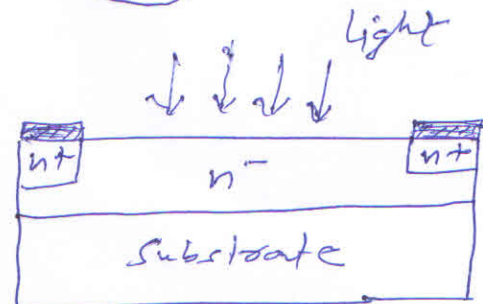 light
n+ n⁻ n+
substrate